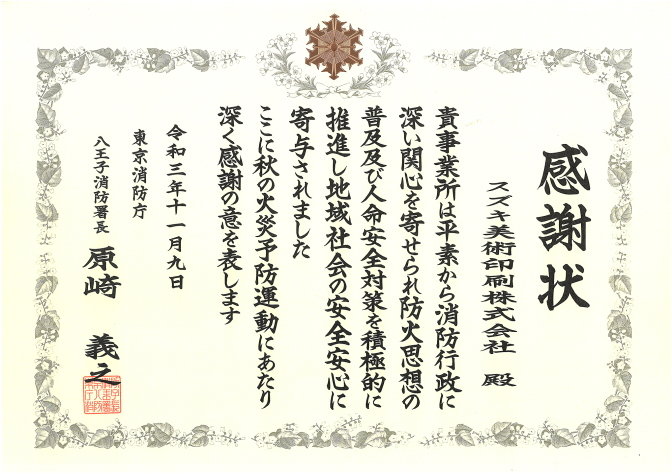 感謝状
スズキ美術印刷株式会社 殿
貴事業所は平素から消防行政に
深い関心を寄せられ防火思想の
普及及び人命安全対策を積極的に
推進し地域社会の安全安心に
寄与されました
ここに秋の火災予防運動にあたり
深く感謝の意を表します
令和三年十一月九日
東京消防庁
八王子消防署長 原崎 義之